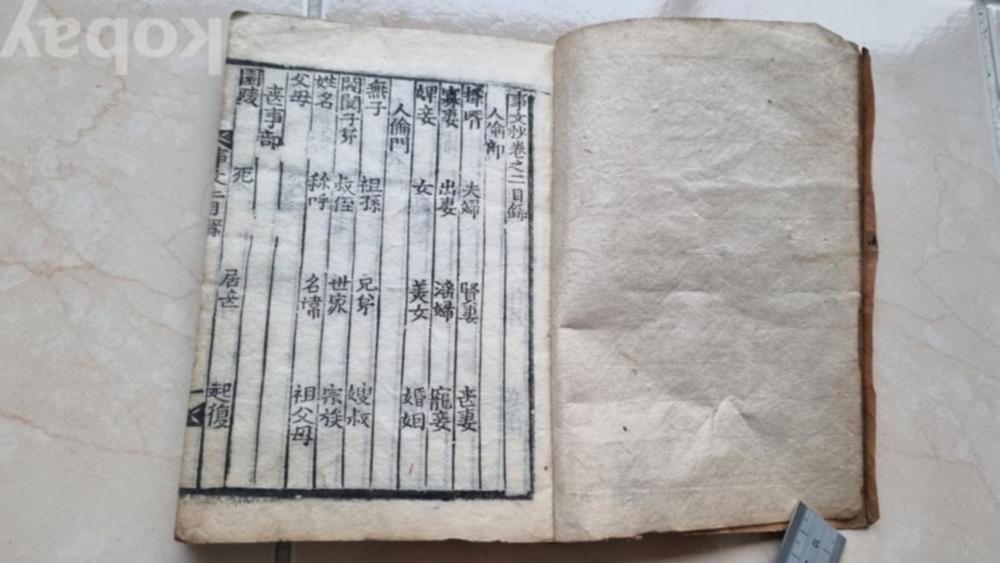 事文抄卷之二目錄
人倫部
擇壻 夫婦 賢妻 丧妻
寡妻 出妻 滛婦 寵妾
婢妾 女 美女 婚姻
人倫門
無子 祖孫 兄弟 嫂叔
閥閱子弟 叔侄 世家 宗族
姓名 稱呼 名諱 祖父母
父母
丧事部
園陵 死 居丧 起復
事文二目錄 一
kobay